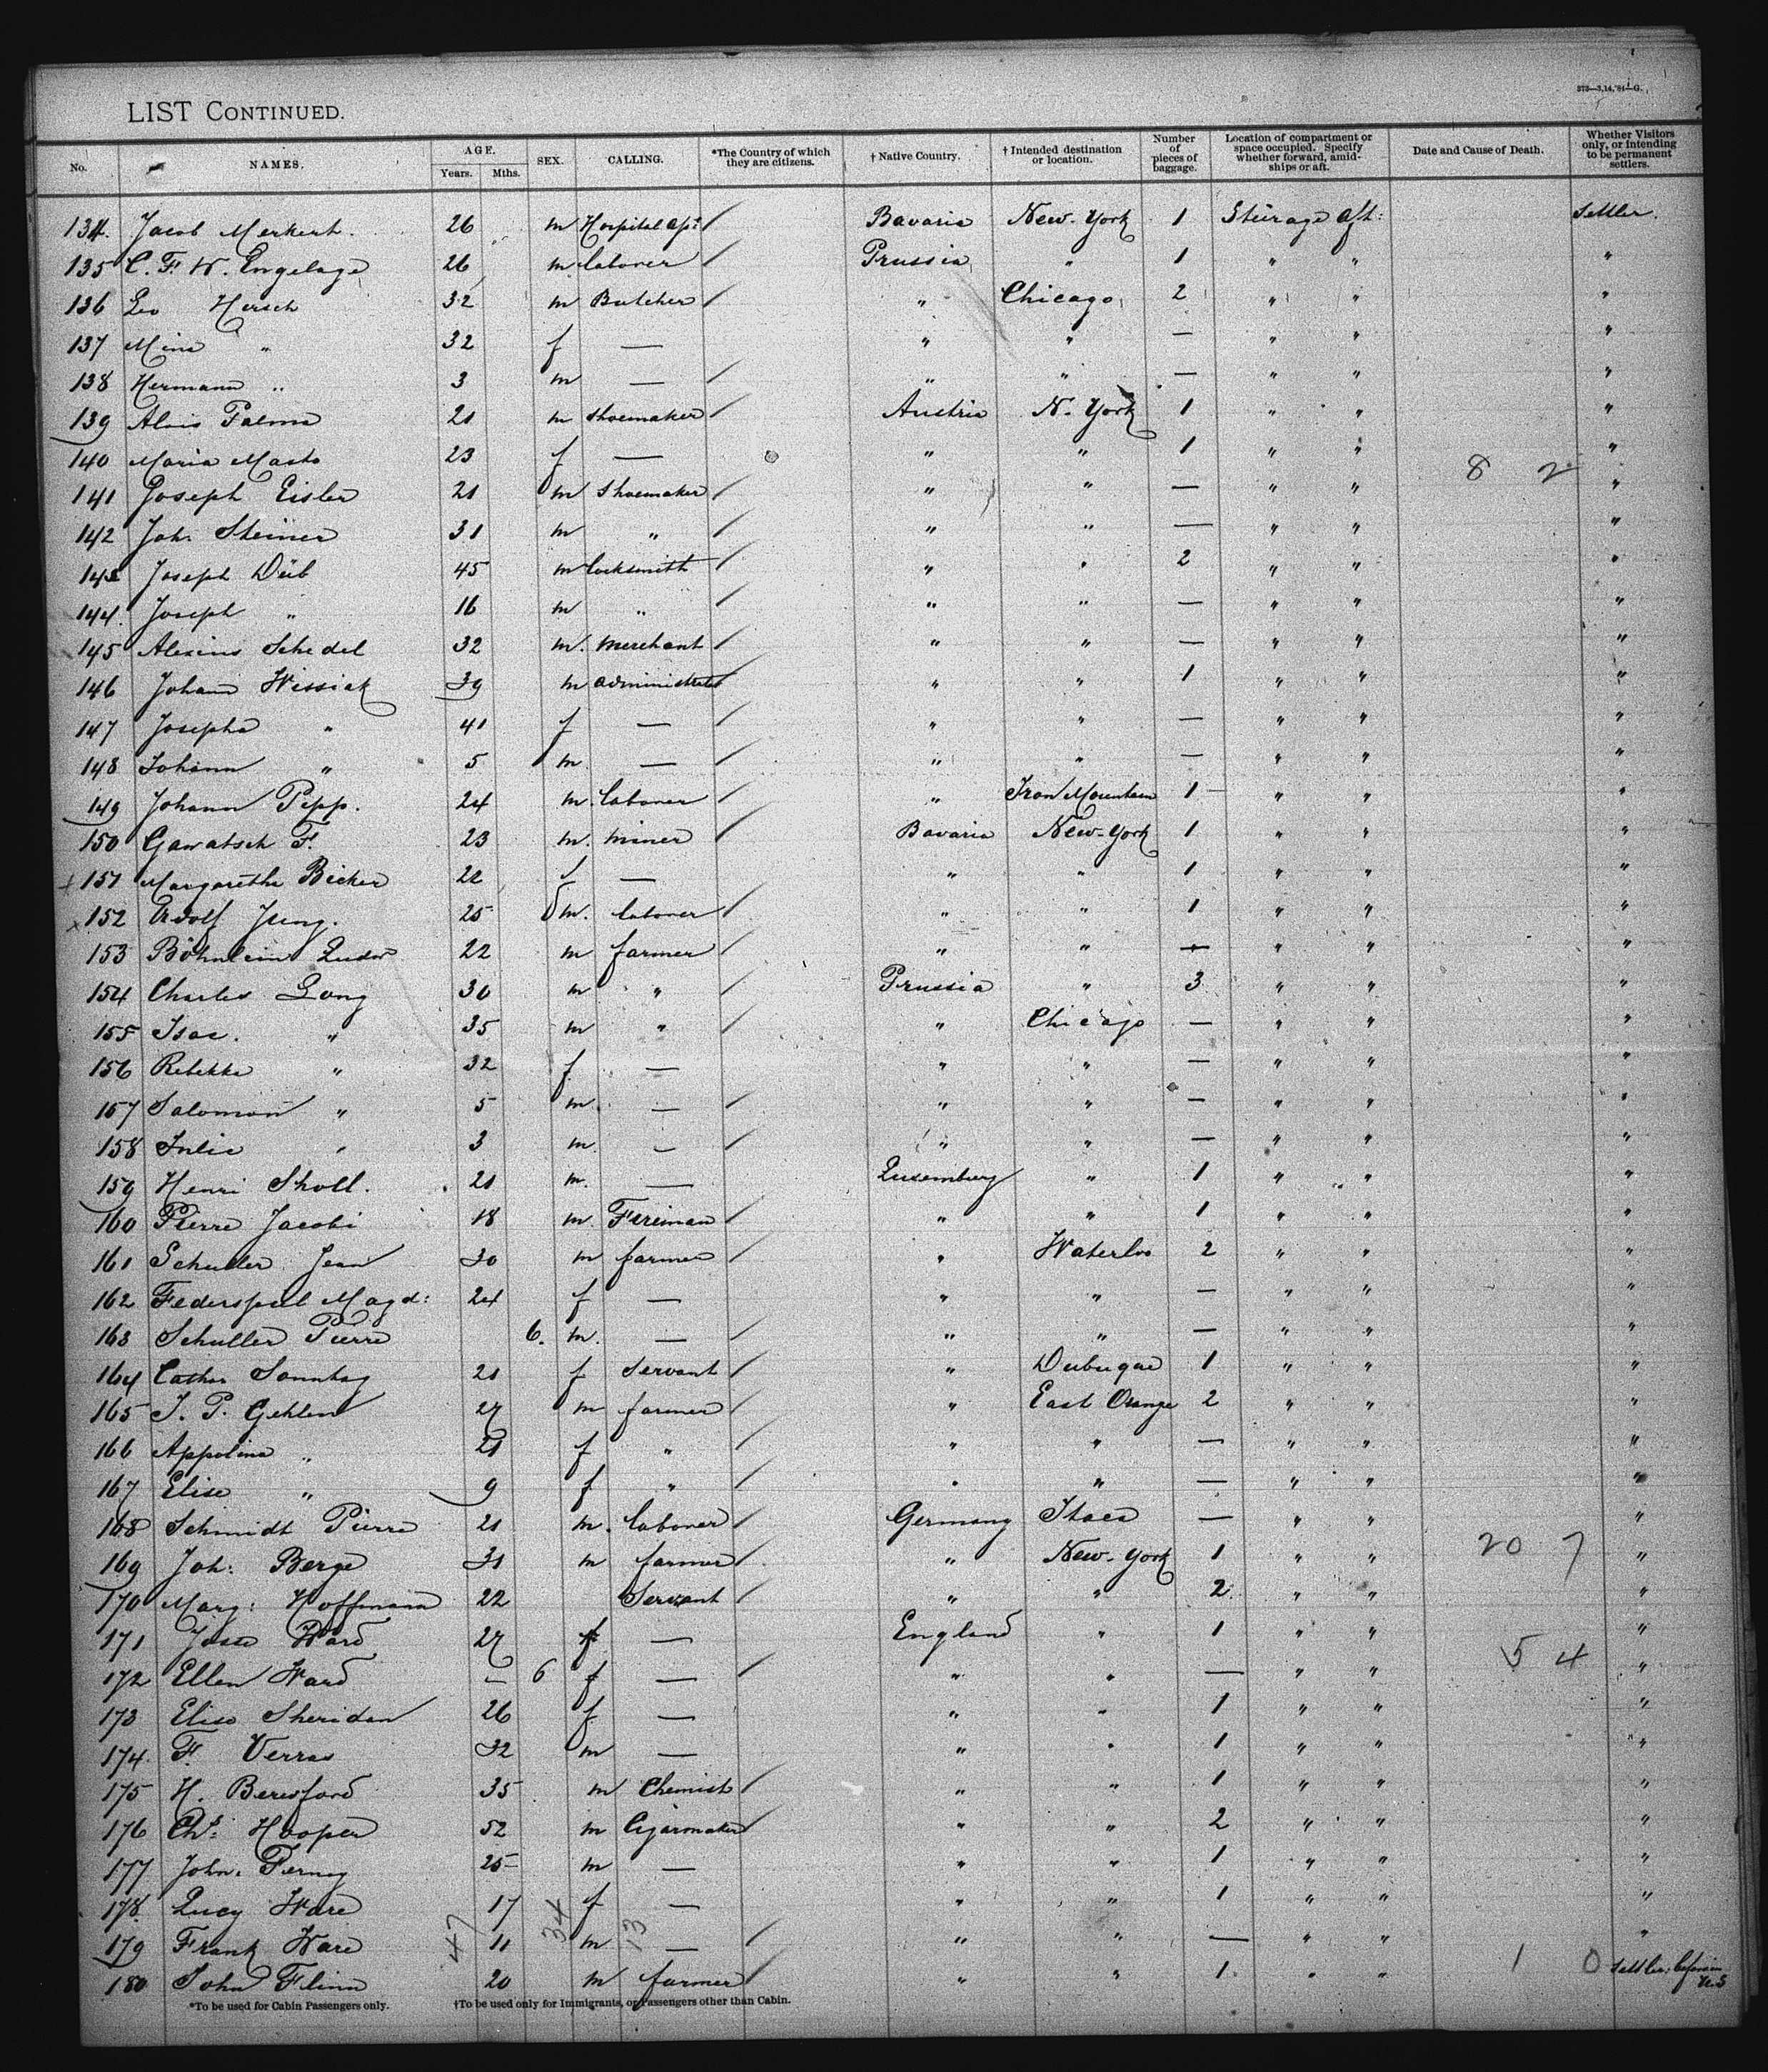 373—3,14,'84—G.
LIST CONTINUED.
No. NAMES. AGE. Years. Mths. SEX. CALLING. *The Country of which they are citizens. † Native Country. † Intended destination or location. Number of pieces of baggage. Location of compartment or space occupied. Specify whether forward, amidships or aft. Date and Cause of Death. Whether Visitors only, or intending to be permanent settlers.
134. Jacob Merkert. 26 m Hospital / Bavaria New-York 1 Steerage aft: Settler.
135 C. F. W. Engelage 26 m laborer / Prussia " 1 " " "
136 Leo Hersch 32 m Butcher / " Chicago 2 " " "
137 Mina " 32 f — " " — " " "
138 Hermann " 3 m — / " " — " " "
139 Alois Palma 21 m shoemaker / Austria N. York 1 " " "
140 Maria Masto 23 f — " " 1 " " "
8 2
141 Joseph Eisler 21 m shoemaker / " " — " " "
142 Joh. Steiner 31 m " / " " — " " "
143 Joseph Düb 45 m locksmith / " " 2 " " "
144. Joseph " 16 m " / " " — " " "
145 Alexius Schedel 32 m. merchant / " " — " " "
146 Johann Wissiak 39 m / " " 1 " " "
147 Josepha " 41 f — / " " — " " "
148 Johann " 5 m — / " " — " " "
149 Johann Pipp. 24 m. laborer / " Iron Mountain 1 " " "
150 Gawatsch F. 23 m. miner / Bavaria New-York 1 " " "
151 Margarethe Bicker 22 f — " " 1 " " "
152 Adolf Jung. 25 m. laborer / " " 1 " " "
153 Böhnlein Ludw 22 m farmer / " " — " " "
154 Charles Long 30 m " / Prussia " 3 " " "
155 Isac. " 35 m " / " Chicago — " " "
156 Rebekka " 32 f — " " — " " "
157 Salomon " 5 m — / " " — " " "
158 Julie " 3 m. — / " " — " " "
159 Henri Sholl. 21 m. — Luxemburg " 1 " " "
160 Pierre Jacobi 18 m. / " " 1 " " "
161 Schuller Jean 30 m farmer / " Waterloo 2 " " "
162 Federspiel Magd: 24 f — " " — " " "
163 Schuller Pierre 6. m. — / " " — " " "
164 Cathar Sonntag 21 f servant / " Dubuque 1 " " "
165 J. P. Gehlen 27 m farmer / " East Orange 2 " " "
166 Appolina " 21 f " / " " — " " "
167 Elise " 9 f " / " " — " " "
168 Schmidt Pierre 21 m. laborer / Germany — " " "
169 Joh: Berge 31 m farmer / " New-York 1 " " "
20 7
170 Marg: Hoffmann 22 Servant / " " 2 " " "
171 Ward 27 f — England " 1 " " "
172 Ellen Ward — 6 f — / " " — " " "
5 4
173 Elise Sheridan 26 f — " " 1 " " "
174. F. Verras 32 m — " " 1 " " "
175 H. Beresford 35 m Chemist / " " 1 " " "
176 Chs: Hooper 52 m Cigarmaker / " " 2 " " "
177 John. 25 m — " " 1 " " "
178. Lucy Ware 17 f — " " 1 " " "
179 Frank Ware 11 m — / " " — " " "
47 34 13
180 John Flinn 20 m farmer / " " 1 " " 1 0 Settler, before in U.S
*To be used for Cabin Passengers only. †To be used only for Immigrants, or Passengers other than Cabin.